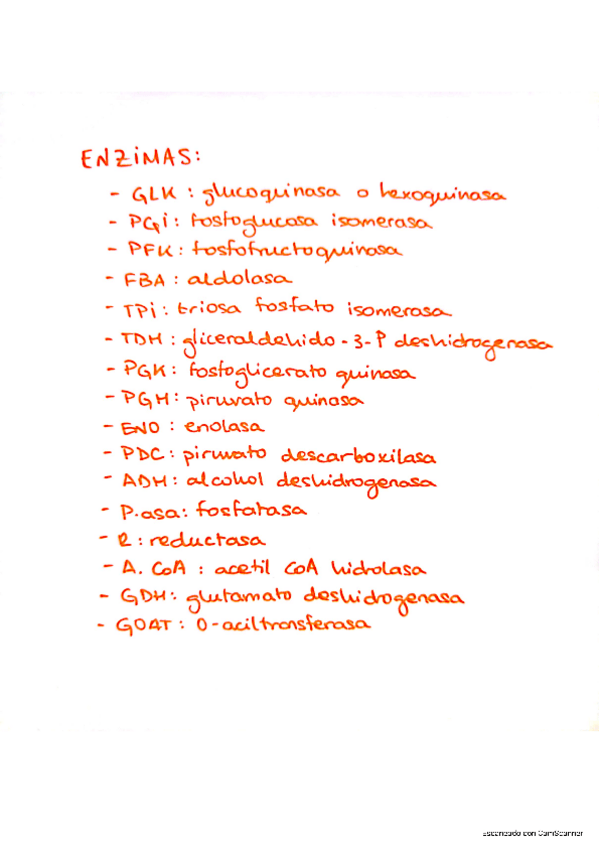 ENZIMAS:
- GLK : glucoquinasa o hexoquinasa
- PGi : fosfoglucosa isomerasa
- PFK : fosfofructoquinasa
- FBA : aldolasa
- TPi : triosa fosfato isomerasa
- TDH : gliceraldehido - 3 - P deshidrogenasa
- PGK : fosfoglicerato quinasa
- PGH : piruvato quinasa
- ENO : enolasa
- PDC : piruvato descarboxilasa
- ADH : alcohol deshidrogenasa
- P.asa : fosfatasa
- R : reductasa
- A. CoA : acetil CoA hidrolasa
- GDH : glutamato deshidrogenasa
- GOAT : O-aciltransferasa
Escaneado con CamScanner